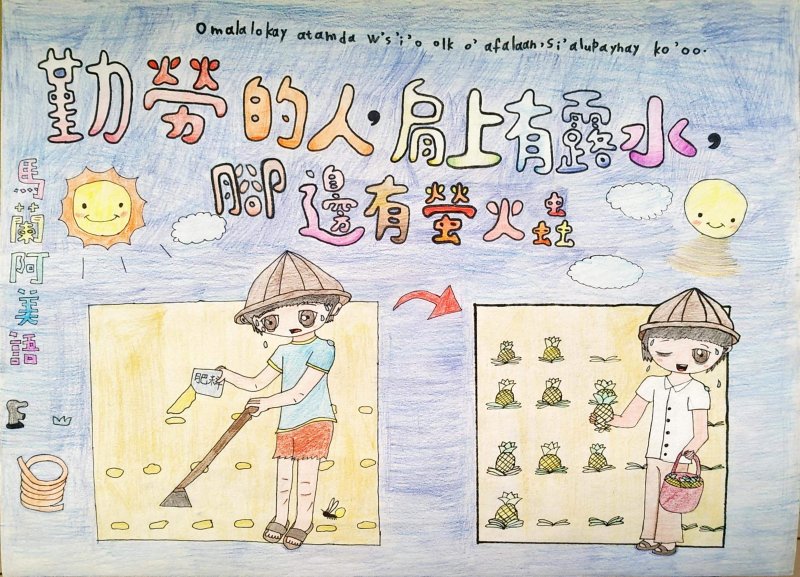 Omalalokay atamda w's'i'o olk o' afalaan, Si'alupaynay ko'oo.
勤勞的人,肩上有露水,
腳邊有螢火蟲
馬蘭阿美語
肥料